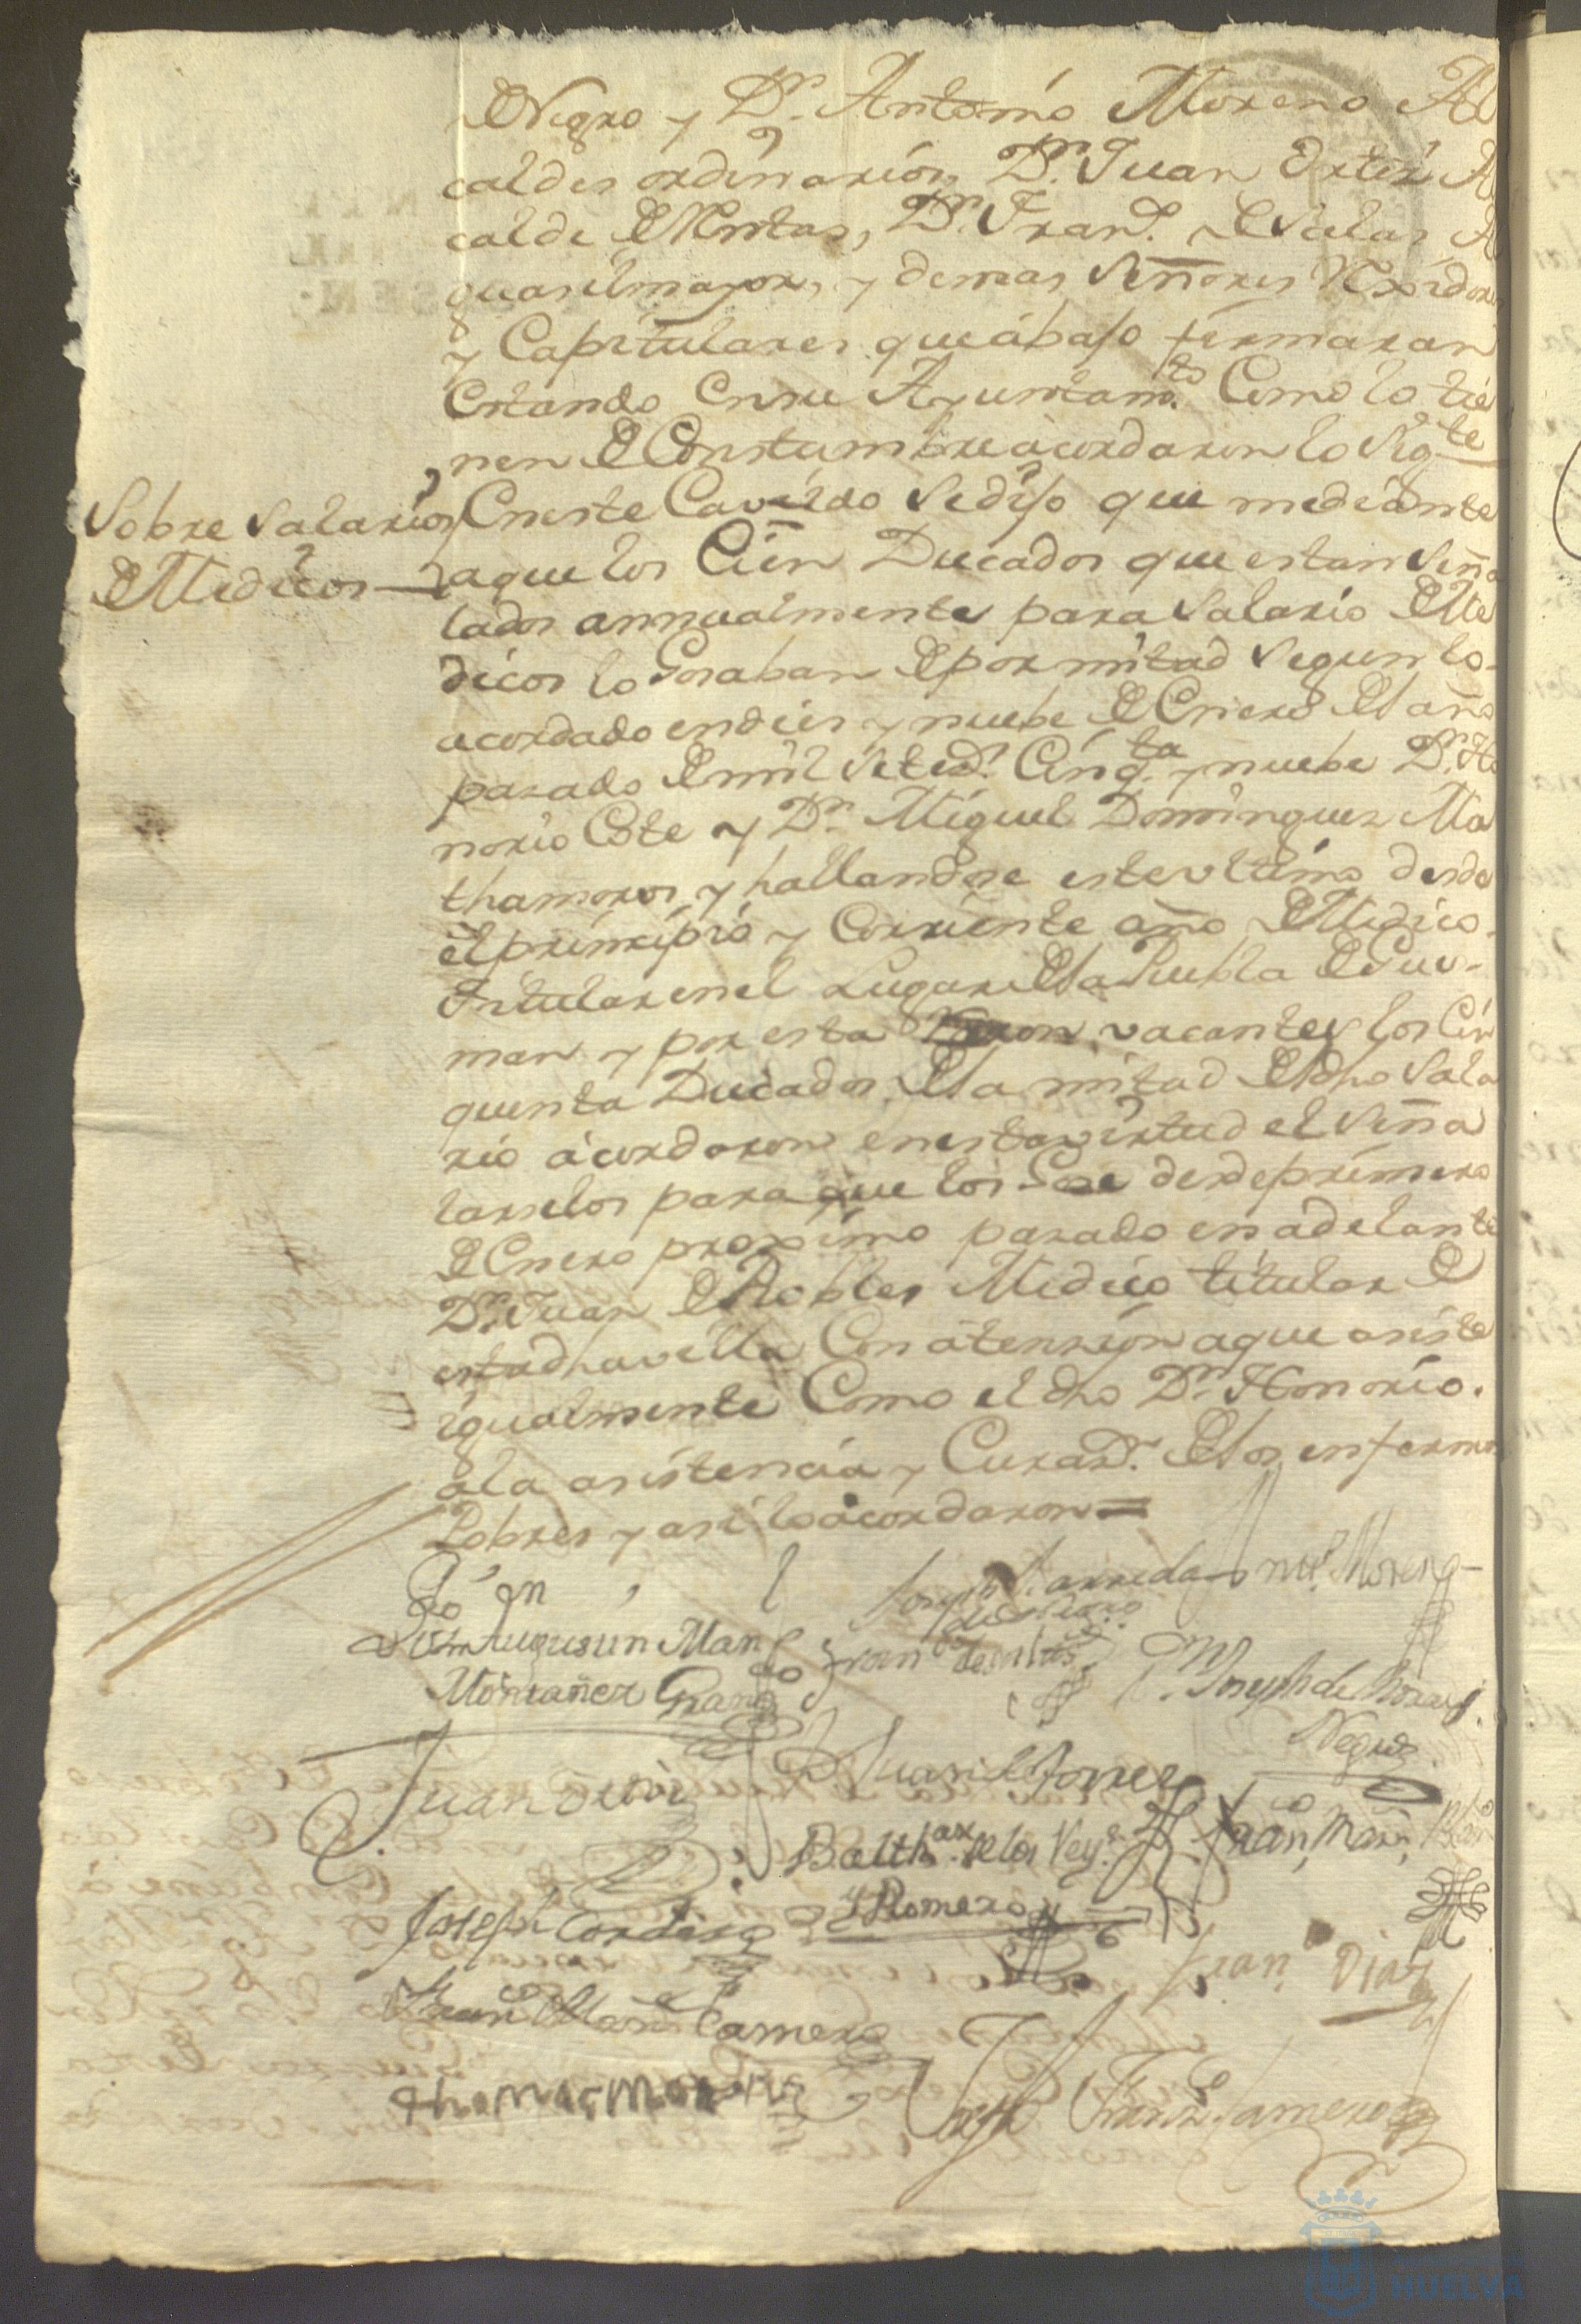 de Negro y Dn. Antonio Moreno Al
caldes ordinarios, Dn. Juan Ortiz Al
calde de Rentas, Dn. Fran.co de Vielas Al
guasil mayor, y demas Señores Rexidores
y Capitulares que abajo firmaran
Estando en su Ayuntam.to Como lo tie
nen de Constumbre acordaron lo sig.te
Sobre Salarios
de Medicos
En este Cavildo se dijo que mediante
a que los Cien Ducados que estan Seña
lados annualmente para Salario de Me
dicos lo Gosaban de por mitad segun lo
acordado en dies y nuebe de Enero del año
pasado de mil setec.s Cinq.ta y nuebe Dn. Ho
norio Cote y Dn. Miguel Dominguez Ma
thamoros y hallandose este ultimo desde
el principio y Corriente año de Medico
Titular en el Lugar de la Puebla de Gus-
man y por esta Razon vacantes los Cin
quenta Ducados de la mitad del dho Sala
rio acordaron en esta virtud el Seña
larselos para que los Gose desde primero
de Enero proximo pasado en adelante
Dn. Juan de Robles Medico titular de
esta dha villa Con atension a que asiste
igualmente Como el dho Dn. Honorio
a la asistencia y Curas.n de los enfermos
Pobres y asi lo acordaron =
Joseph Barreda
de Negro
Ant.o Moreno
Augustin Man
Montañez
Fran.co de
Dn. Joseph de
Negro
Juan Ortiz
Juan de Torres
Balth.ar de los Rey.s
y Romero
Joseph Cordero
Fran.co Diaz
Fran.co Mar.n Camero
thomas moreno
Joseph Fran.co Camero
HUELVA